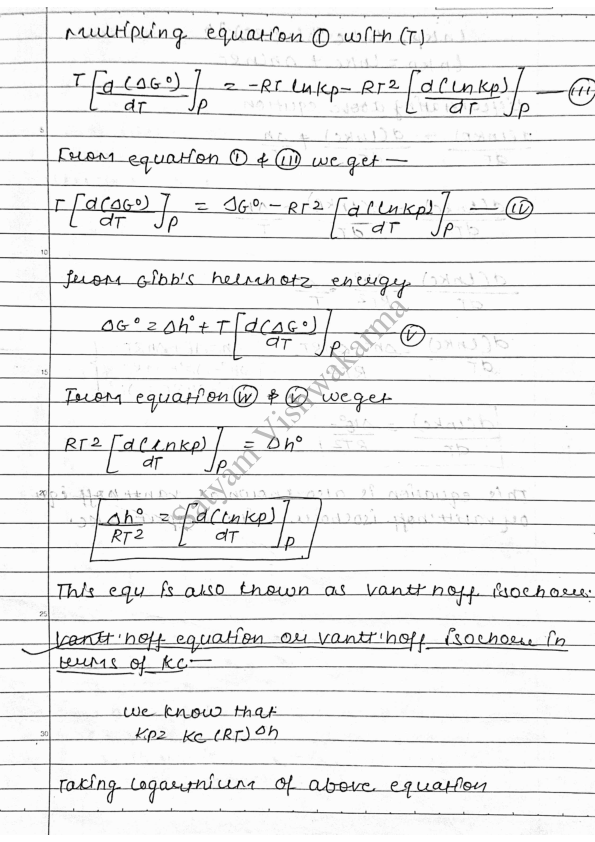 Multipling equation ① with (T)
T[d(ΔG°)/dT]P = -RT lnKp - RT2 [d(lnKp)/dT]P — (III)
5
From equation ① & (III) we get —
T[d(ΔG°)/dT]P = ΔG° - RT2 [d(lnKp)/dT]P — (IV)
10
from Gibb's helmhotz energy
ΔG° = Δh° + T[d(ΔG°)/dT]P (V)
15
From equation (IV) & (V) we get
RT2 [d(lnKp)/dT]P = Δh°
20
Δh°/RT2 = [d(lnKp)/dT]P
This equ is also known as vantt hoff isochore.
25
vantt'hoff equation or vantt'hoff isochore in
terms of KC —
we know that
30
Kp = KC (RT) Δh
Taking logarithium of above equation
Satyam Vishwakarma